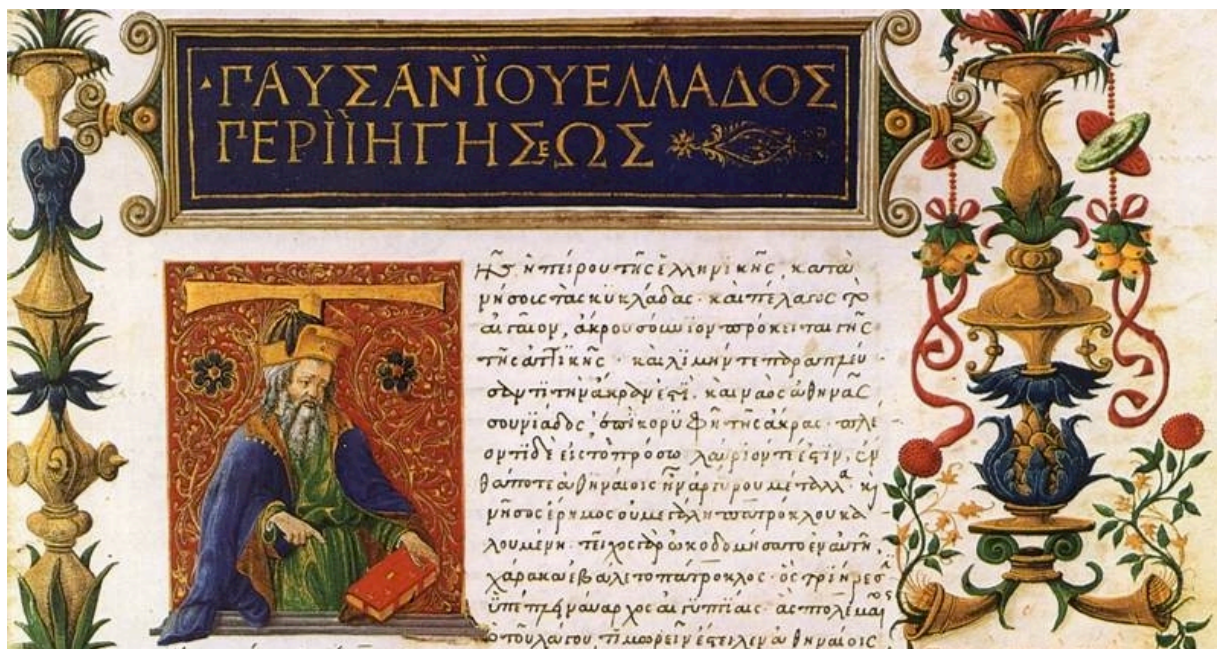 ΠΑΥΣΑΝΪΟΥ ΕΛΛΑΔΟΣ
ΠΕΡΪΗΓΗΣΕΩΣ
Τῆς ἠπείρου τῆς ἑλληνικῆς, κατὰ
νήσοις τὰς κυκλάδας. καὶ πέλαγος τὸ
αἰγαῖον, ἄκρον σούνιον πρόκειται γῆς
τῆς ἀττικῆς. καὶ λιμήν τε παραπλεύ
σαντι τὴν ἄκραν ἐστὶ. καὶ ναὸς ἀθηνᾶς
σουνιάδος ἐπὶ κορυφῇ τῆς ἄκρας. πλέ
οντι δὲ εἰς τὸ πρόσω λαύριόν τέ ἐστιν, ἔν
θά ποτε ἀθηναίοις ἦν ἀργύρου μέταλλα. καὶ
νῆσος ἔρημος οὐ μεγάλη πατρόκλου κα
λουμένη. τεῖχος γὰρ ὠκοδομήσατο ἐν αὐτῇ,
χάρακα ἐβάλετο πάτροκλος. ὃς τριήρεσιν
ὑπέπλει ναύαρχος αἰγυπτίαις. ἃς πτολεμαῖος
ὁ τοῦ λάγου τιμωρεῖν ἔστειλεν ἀθηναίοις